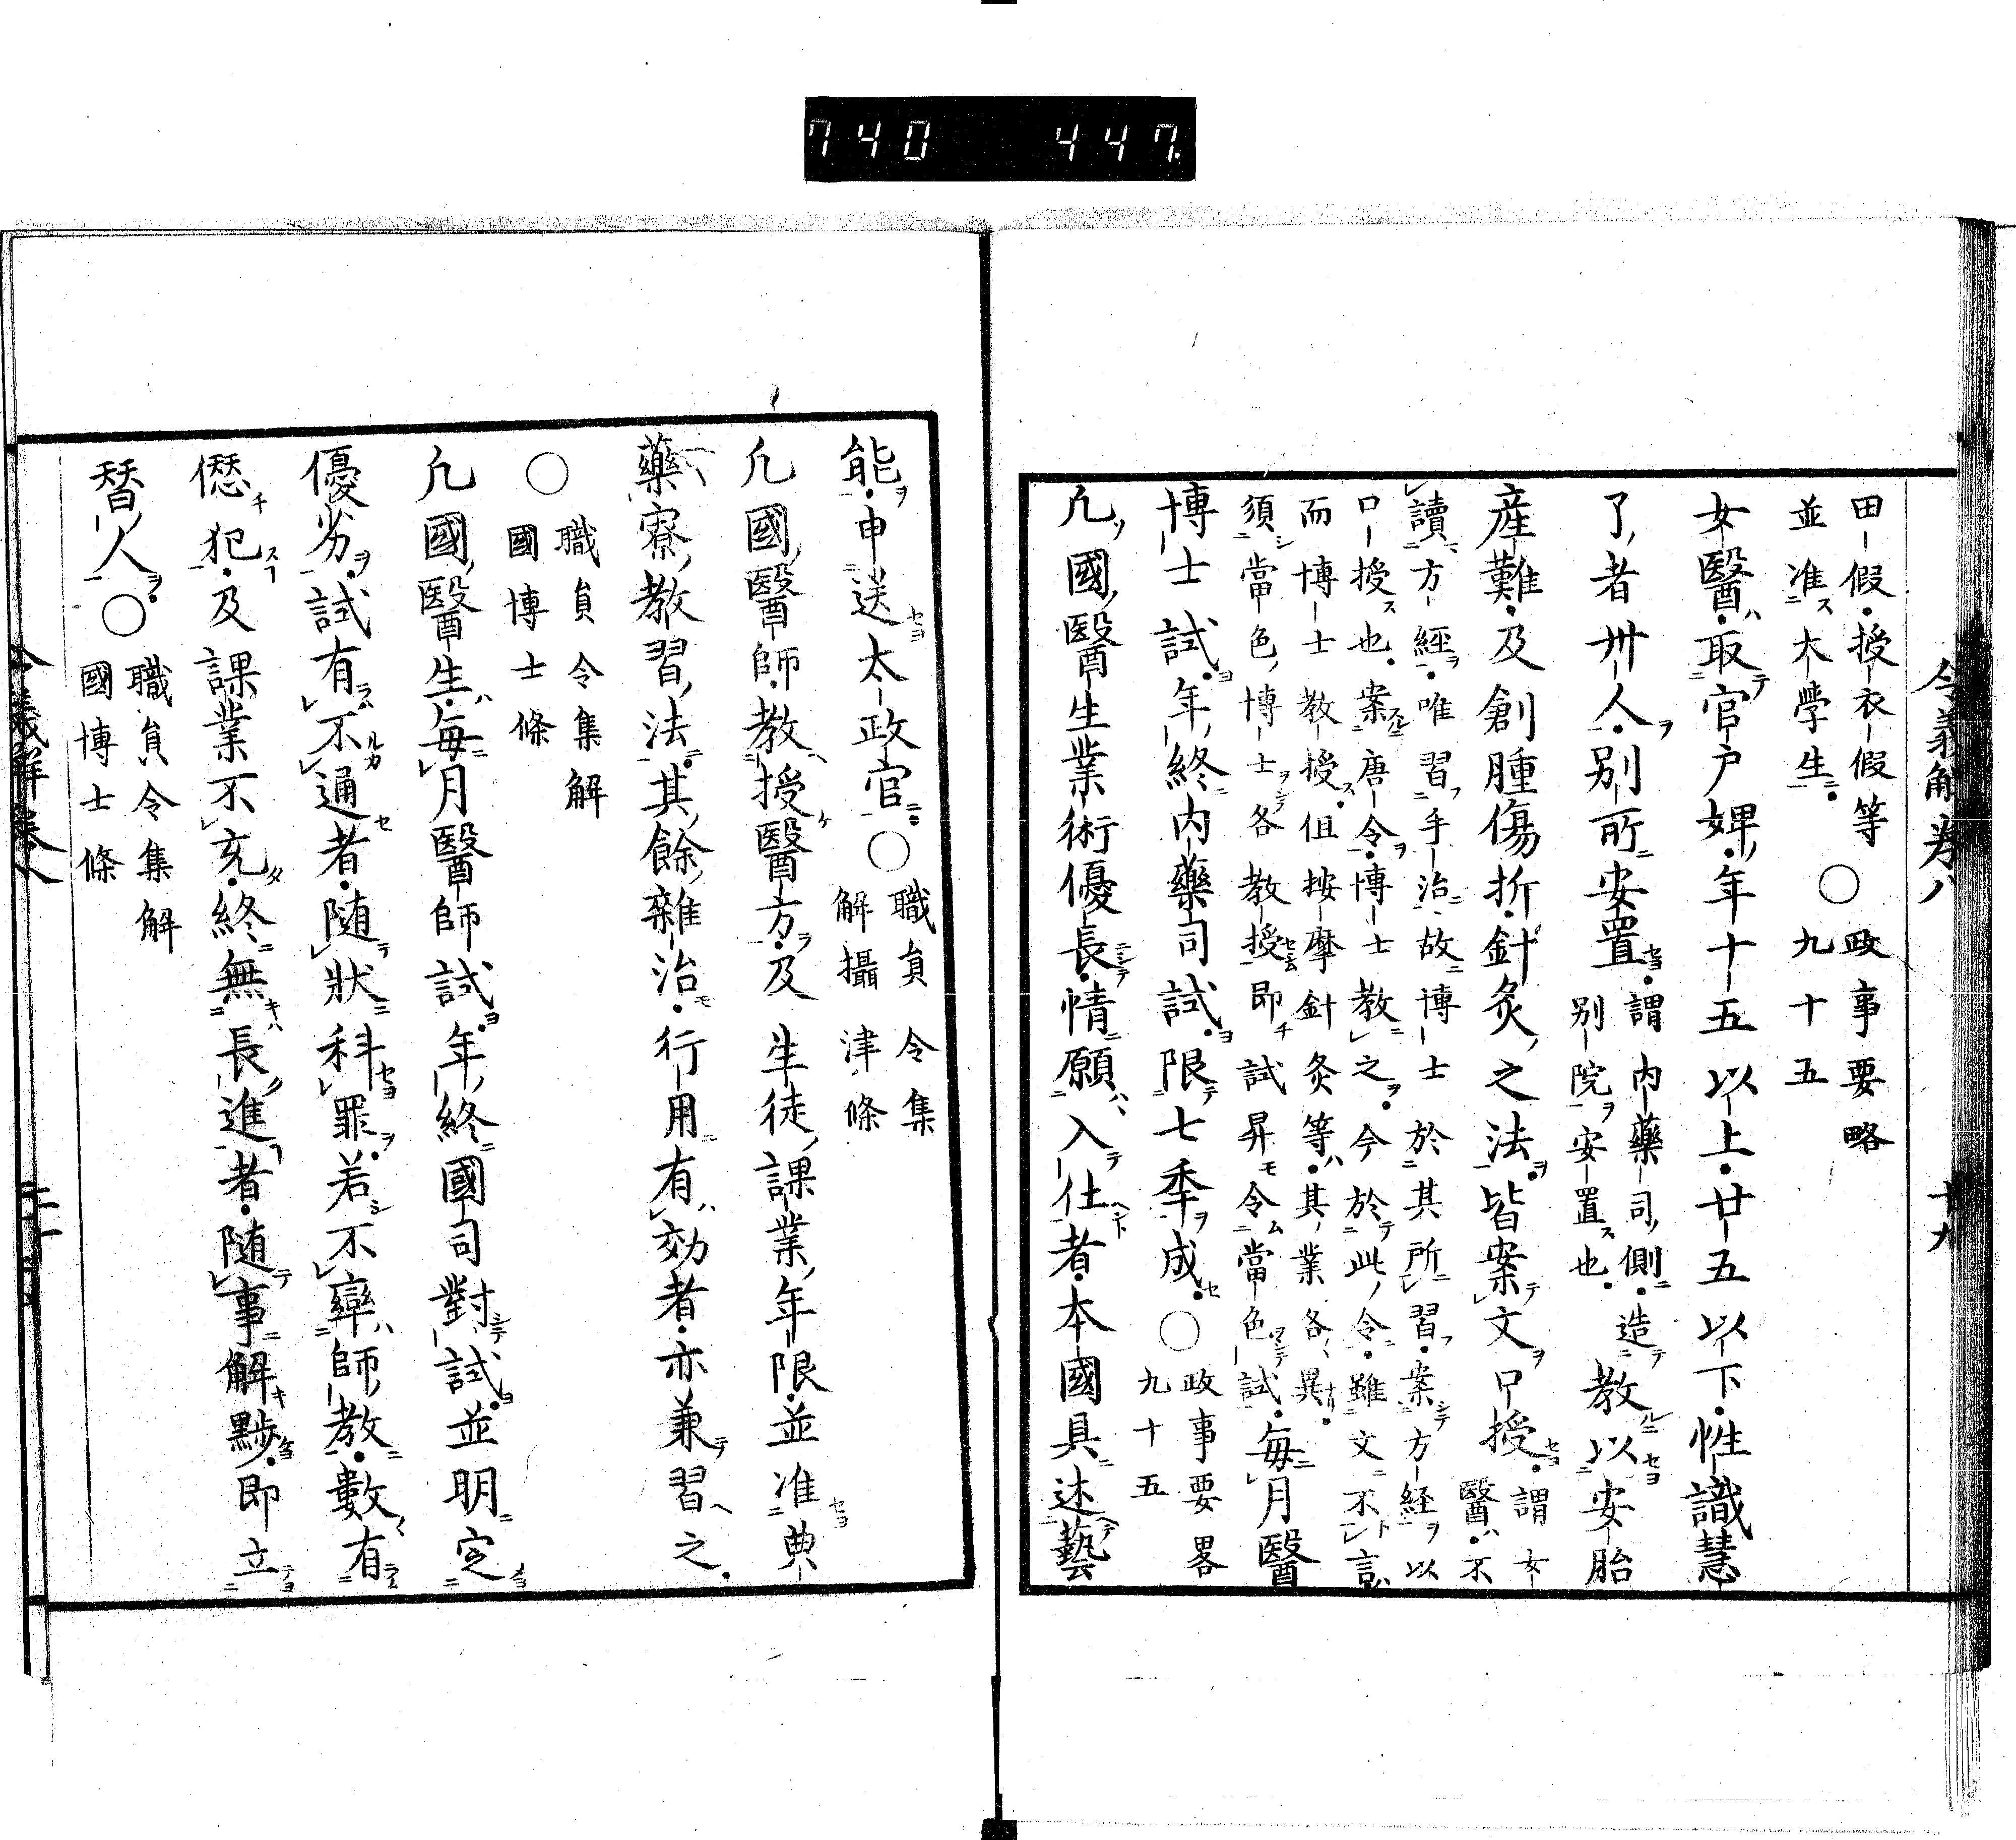 740 447.
令義解巻八 廿九
田假授衣假等 ○政事要略
並准大學生 九十五
女醫取官戸婢年十五以上廿五以下性識慧
了者卅人別所安置謂內藥司側造
別院安置也教以安胎
産難及創腫傷折針灸之法皆案文口授謂女
醫不
讀方經唯習手治故博士於其所習案方経以
口授也案唐令博士教之今於此令雖文不言
而博士教授但按摩針灸等其業各異
須當色博士各教授即試昇令當色試毎月醫
博士試年終內藥司試限七季成○政事要畧
九十五
凢國醫生業術優長情願入仕者本國具述藝
能申送太政官○職員令集
解攝津條
凢國醫師教授醫方及生徒課業年限並准典
藥寮教習法其餘雜治行用有効者亦兼習之
○職員令集解
國博士條
凢國醫生毎月醫師試年終國司對試並明定
優劣試有不通者随狀科罪若不率師教數有
𠍴犯及課業不充終無長進者随事解黜即立
替人○職員令集解
國博士條
令義解巻八